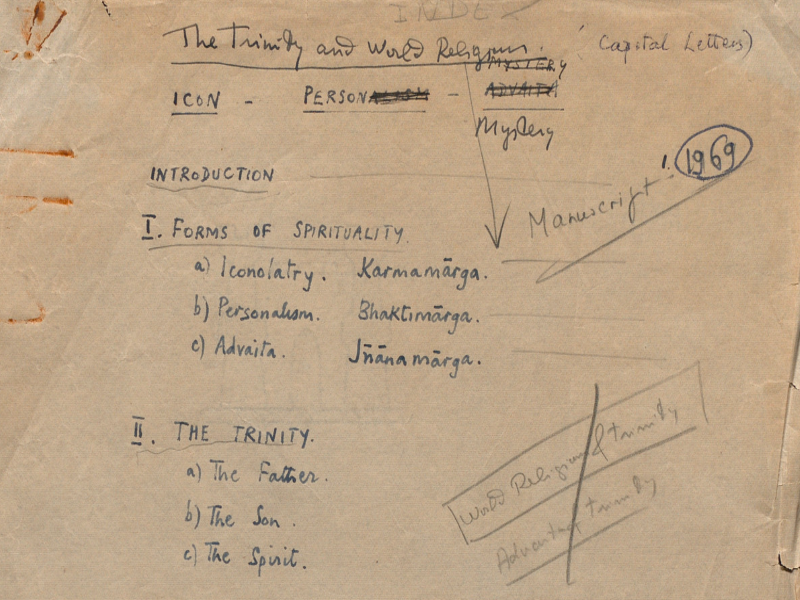 INDEX
The Trinity and World Religions. (Capital Letters)
MYSTERY
ICON - PERSONALISM - ADVAITA
Mystery
1969
INTRODUCTION
Manuscript - 1.
I. FORMS OF SPIRITUALITY.
a) Iconolatry. Karmamārga.
b) Personalism. Bhaktimārga.
c) Advaita. Jñānamārga.
II. THE TRINITY.
a) The Father.
b) The Son.
c) The Spirit.
World Religions & trinity
trinity